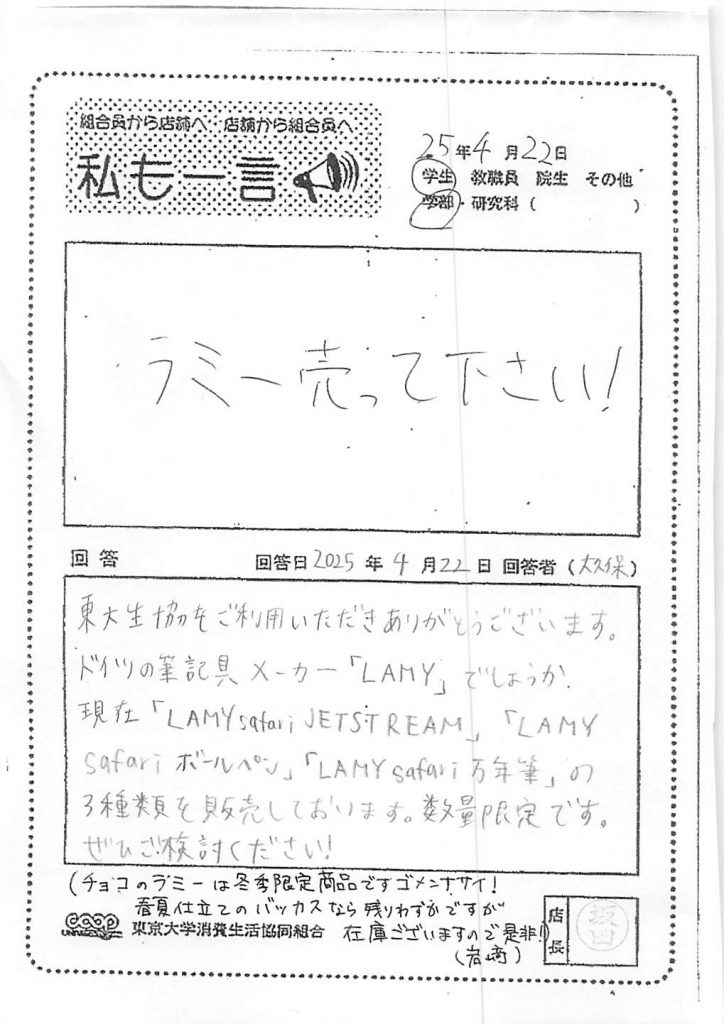 組合員から店舗へ 店舗から組合員へ
私も一言
25年4月22日
学生 教職員 院生 その他
学部・研究科( )
ラミー売って下さい!
回答 回答日2025年4月22日 回答者(大久保)
東大生協をご利用いただきありがとうございます。
ドイツの筆記具メーカー「LAMY」でしょうか。
現在「LAMY safari JETSTREAM」「LAMY
safari ボールペン」「LAMY safari 万年筆」の
3種類を販売しております。数量限定です。
ぜひご検討ください!
(チョコのラミーは冬季限定商品ですゴメンナサイ!
春夏仕立てのバッカスなら残りわずかですが
在庫ございますので是非!)
(岩崎)
coop
UNIV.
東京大学消費生活協同組合
店長
坂田